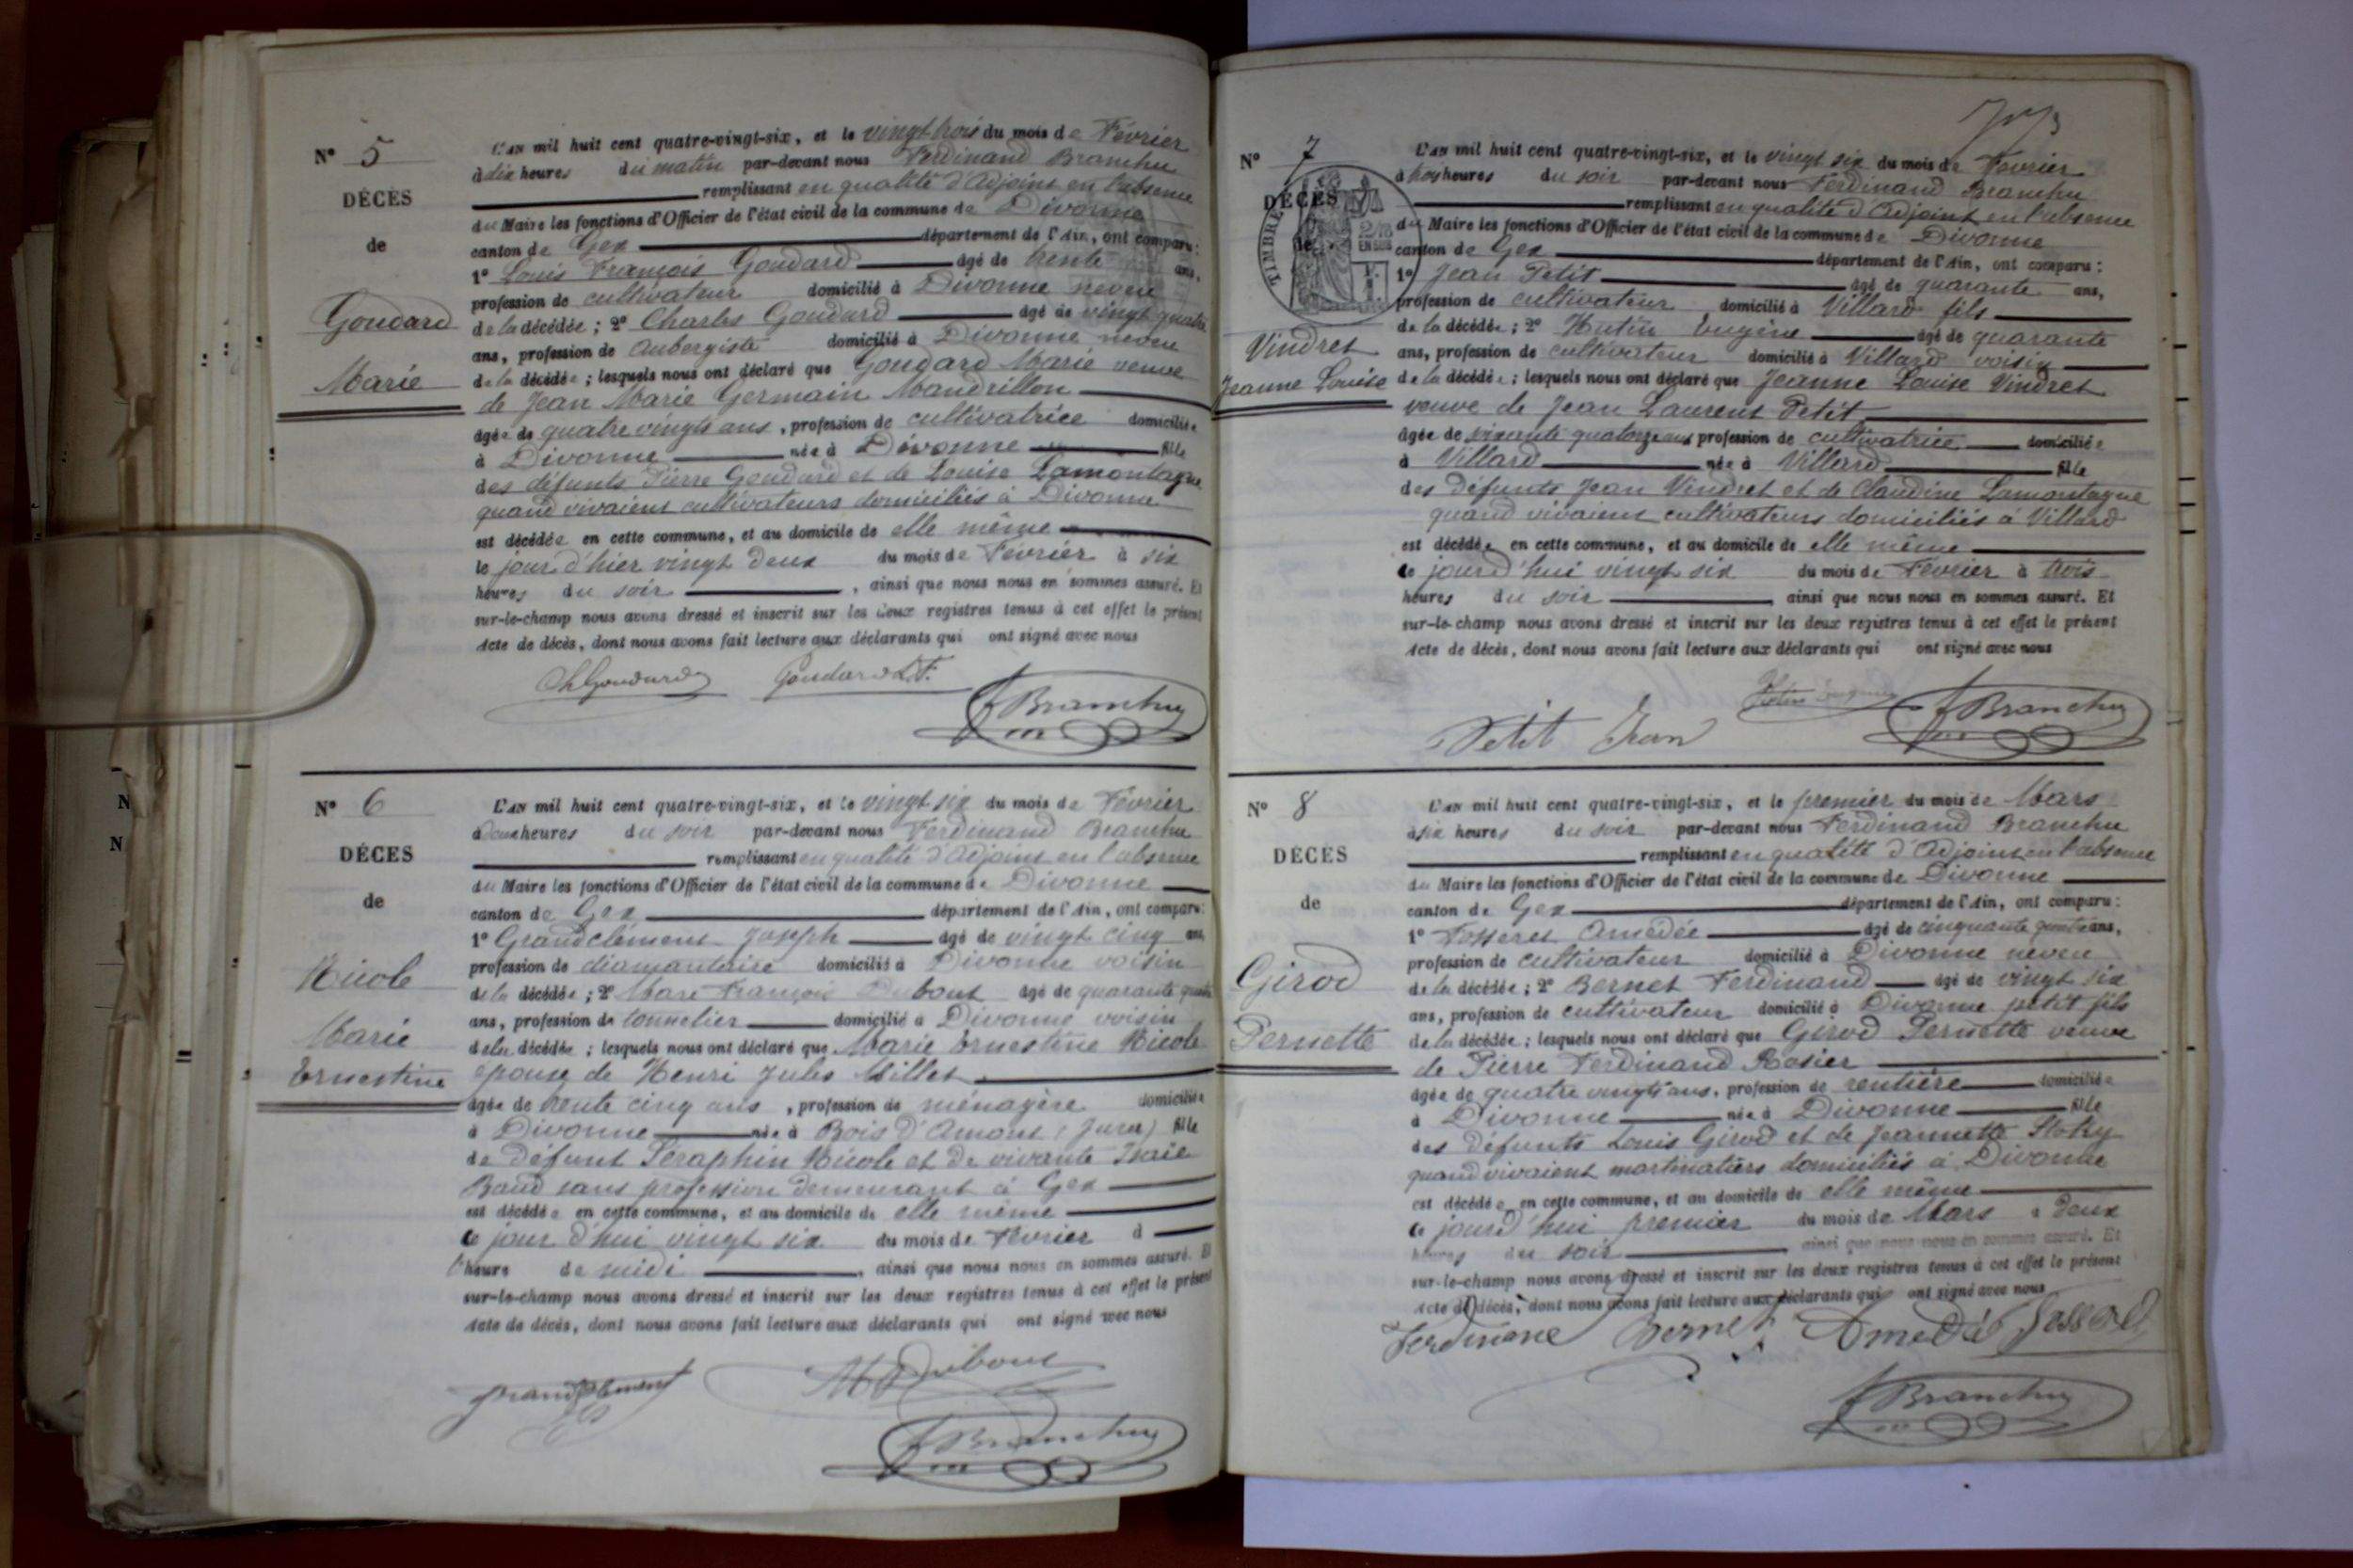 N° 5
DÉCÈS
de
Goudard
Marie
L'AN mil huit cent quatre-vingt-six, et le vingt trois du mois de Février
à dix heures du matin par-devant nous Ferdinand Branchu
remplissant en qualité d'Adjoint en l'absence
du Maire les fonctions d'Officier de l'état civil de la commune de Divonne
canton de Gex département de l'Ain, ont comparu :
1° Louis François Goudard âgé de trente ans,
profession de cultivateur domicilié à Divonne neveu
de la décédée ; 2° Charles Goudard âgé de vingt quatre
ans, profession de Aubergiste domicilié à Divonne neveu
de la décédée ; lesquels nous ont déclaré que Goudard Marie veuve
de Jean Marie Germain Mandrillon
âgée de quatre vingts ans, profession de cultivatrice domiciliée
à Divonne née à Divonne fille
des défunts Pierre Goudard et de Louise Lamontagne
quand vivaient cultivateurs domiciliés à Divonne
est décédée en cette commune, et au domicile de elle même
le jour d'hier vingt deux du mois de Février à six
heures du soir, ainsi que nous nous en sommes assuré. Et
sur-le-champ nous avons dressé et inscrit sur les deux registres tenus à cet effet le présent
Acte de décès, dont nous avons fait lecture aux déclarants qui ont signé avec nous
Ch Goudard Goudard L.F.
F Branchu
N° 6
DÉCÈS
de
Nicole
Marie
Ernestine
L'AN mil huit cent quatre-vingt-six, et le vingt six du mois de Février
à deux heures du soir par-devant nous Ferdinand Branchu
remplissant en qualité d'Adjoint en l'absence
du Maire les fonctions d'Officier de l'état civil de la commune de Divonne
canton de Gex département de l'Ain, ont comparu :
1° Grandclément Joseph âgé de vingt cinq ans,
profession de diamantaire domicilié à Divonne voisin
de la décédée ; 2° Marc François Dubout âgé de quarante quatre
ans, profession de tonnelier domicilié à Divonne voisin
de la décédée ; lesquels nous ont déclaré que Marie Ernestine Nicole
épouse de Henri Jules Millet
âgée de trente cinq ans, profession de ménagère domiciliée
à Divonne née à Bois d'Amont (Jura) fille
de défunt Séraphin Nicole et de vivante Isaie
Baud sans profession demeurant à Gex
est décédée en cette commune, et au domicile de elle même
ce jour d'hui vingt six du mois de Février à
l'heure de midi, ainsi que nous nous en sommes assuré. Et
sur-le-champ nous avons dressé et inscrit sur les deux registres tenus à cet effet le présent
Acte de décès, dont nous avons fait lecture aux déclarants qui ont signé avec nous
Grandclément M F Dubout
F Branchu
N° 7
DÉCÈS
de
TIMBRE
EN SUS
Vindret
Jeanne Louise
L'AN mil huit cent quatre-vingt-six, et le vingt six du mois de Février
à trois heures du soir par-devant nous Ferdinand Branchu
remplissant en qualité d'Adjoint en l'absence
du Maire les fonctions d'Officier de l'état civil de la commune de Divonne
canton de Gex département de l'Ain, ont comparu :
1° Jean Petit âgé de quarante ans,
profession de cultivateur domicilié à Villard fils
de la décédée ; 2° Hutin Eugène âgé de quarante
ans, profession de cultivateur domicilié à Villard voisin
de la décédée ; lesquels nous ont déclaré que Jeanne Louise Vindret
veuve de Jean Laurent Petit
âgée de soixante quatorze ans profession de cultivatrice domiciliée
à Villard née à Villard fille
des défunts Jean Vindret et de Claudine Lamontagne
quand vivaient cultivateurs domiciliés à Villard
est décédée en cette commune, et au domicile de elle même
ce jourd'hui vingt six du mois de Février à trois
heures du soir, ainsi que nous nous en sommes assuré. Et
sur-le-champ nous avons dressé et inscrit sur les deux registres tenus à cet effet le présent
Acte de décès, dont nous avons fait lecture aux déclarants qui ont signé avec nous
Hutin Eugène
Petit Jean F Branchu
N° 8
DÉCÈS
de
Girod
Pernette
L'AN mil huit cent quatre-vingt-six, et le premier du mois de Mars
à six heures du soir par-devant nous Ferdinand Branchu
remplissant en qualité d'Adjoint en l'absence
du Maire les fonctions d'Officier de l'état civil de la commune de Divonne
canton de Gex département de l'Ain, ont comparu :
1° Fosseret Amédée âgé de cinquante quatre ans,
profession de cultivateur domicilié à Divonne neveu
de la décédée ; 2° Bernet Ferdinand âgé de vingt six
ans, profession de cultivateur domicilié à Divonne petit fils
de la décédée ; lesquels nous ont déclaré que Girod Pernette veuve
de Pierre Ferdinand Rosier
âgée de quatre vingts ans, profession de rentière domiciliée
à Divonne née à Divonne fille
des défunts Louis Girod et de Jeannette
quand vivaient martinatiers domiciliés à Divonne
est décédée en cette commune, et au domicile de elle même
ce jourd'hui premier du mois de Mars à deux
heures du soir ainsi que nous nous en sommes assuré. Et
sur-le-champ nous avons dressé et inscrit sur les deux registres tenus à cet effet le présent
Acte de décès, dont nous avons fait lecture aux déclarants qui ont signé avec nous
Ferdinand Bernet Amédé
F Branchu